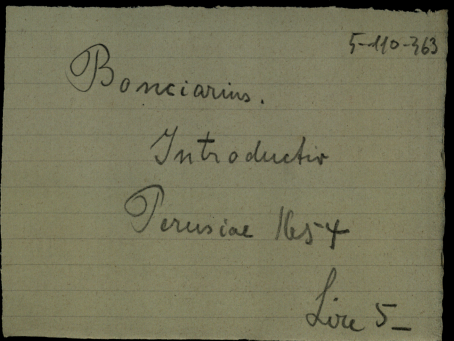 5-110-363
Bonciarius.
Introductio
Perusiae 1654
Lire 5_